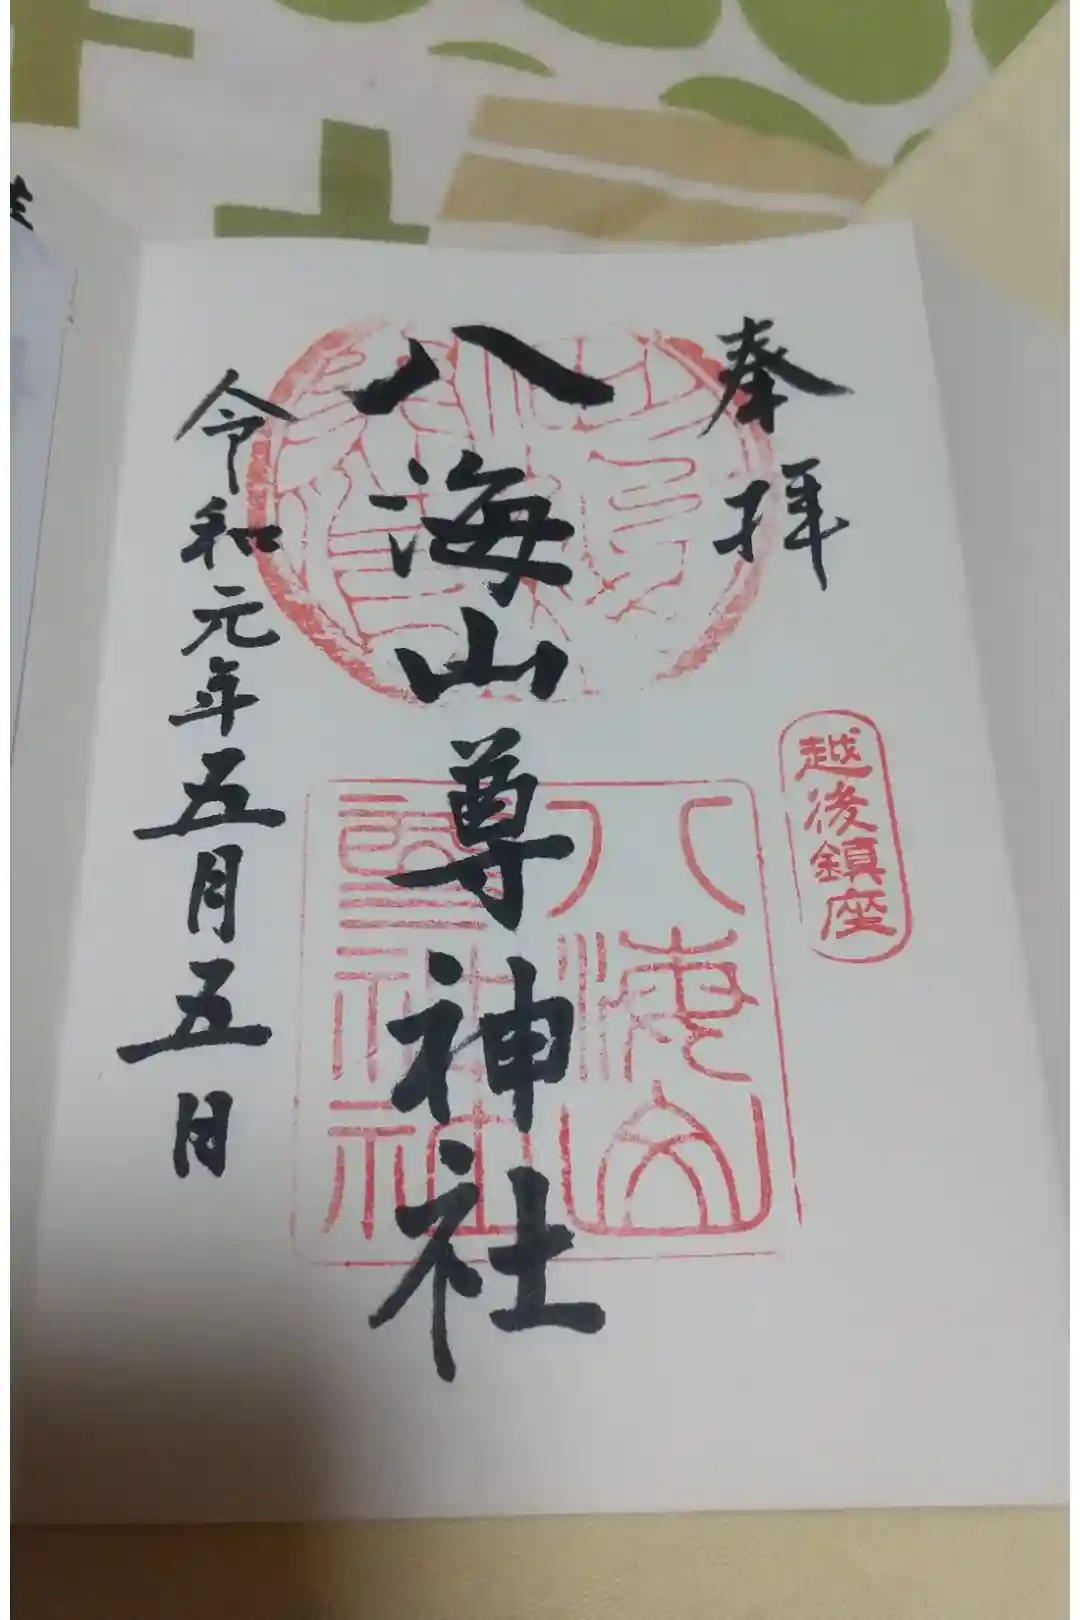 奉拝
越後鎮座
八海山尊神社
八海山
令和元年五月五日